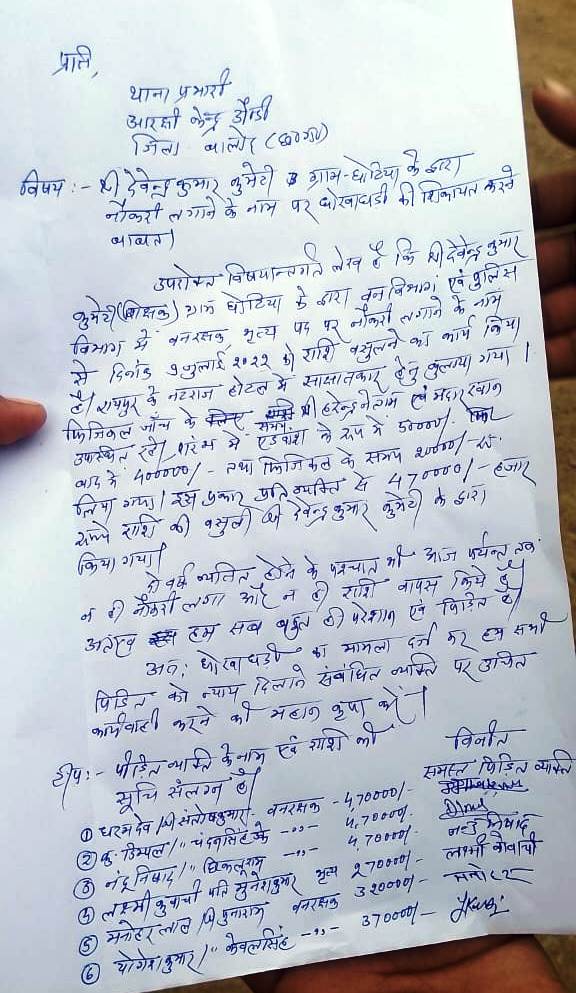 प्रति,
थाना प्रभारी
आरक्षी केन्द्र डौण्डी
जिला बालोद (छ०ग०)
विषय :- श्री देवेन्द्र कुमार कुमेटी ग्राम-घोटिया के द्वारा
नौकरी लगाने के नाम पर धोखाधडी की शिकायत करने
बाबत।
उपरोक्त विषयान्तर्गत लेख है कि श्री देवेन्द्र कुमार
कुमेटी (शिक्षक) ग्राम घोटिया के द्वारा वन विभाग एवं पुलिस
विभाग में वनरक्षक, भृत्य पद पर नौकरी लगाने के नाम
से दिनांक 9 जुलाई २०२२ को राशि वसुलने का कार्य किया
है। रायपुर के नटराज होटल में साक्षातकार हेतु बुलाया गया।
फिजिकल जाँच के समय श्री हरेन्द्र नेताम एवं मदार खान
उपस्थित रहे। प्रारंभ में एडवांस के रूप में 50000/-
बाद में 400000/- तथा फिजिकल के समय 20000/- रू.
लिया गया। इस प्रकार प्रति व्यक्ति से 470000/- हजार
रूपये राशि की वसुली श्री देवेन्द्र कुमार कुमेटी के द्वारा
किया गया।
वर्ष व्यतित होने के पश्चात भी आज पर्यन्त तक
न ही नौकरी लगा और न ही राशि वापस किये है
अतएव हम सब बहुत ही परेशान एवं पिडित है।
अतः धोखाधडी का मामला दर्ज कर हम सभी
पिडित को न्याय दिलाने संबंधित व्यक्ति पर उचित
कार्यवाही करने की महान कृपा करें।
टीप :- पीडित व्यक्ति के नाम एवं राशि की
सुचि संलग्न है।
विनीत
समस्त पिडित व्यक्ति
① धरमदेव / श्री संतोष कुमार वनरक्षक - 4,70000/-
② कु. डिम्पल / " चंदनसिंह -"- 4,70000/-
③ नंदू निषाद / " -"- 4,70000/- नन्दू निषाद
④ लक्ष्मी कुवाची पति मुनेश कुमार भृत्य 270000/- लक्ष्मी कोवाची
⑤ मनोहर लाल / श्री पुनाराम वनरक्षक 320000/-
⑥ योगेश कुमार / " केवलसिंह -"- 370000/-